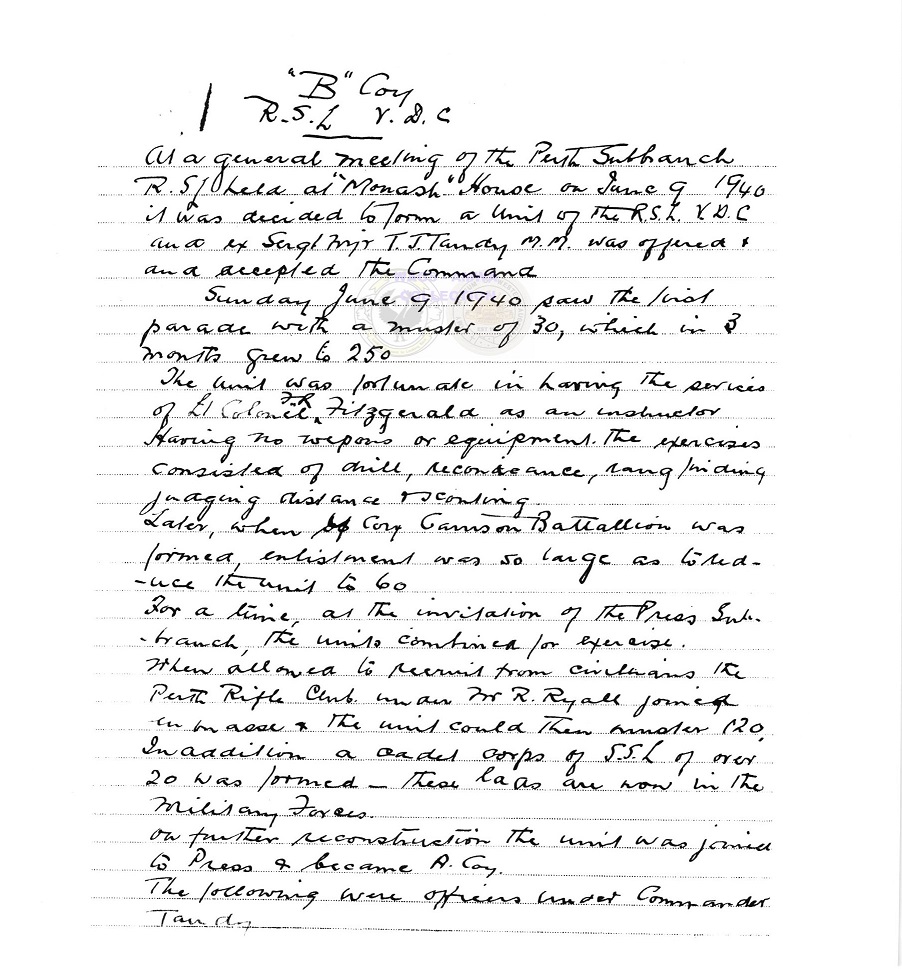 "B" Coy
R.S.L V.D.C
At a general meeting of the Perth Subbranch
R.S.L held at "Monash" House on June 9 1940
it was decided to form a Unit of the R.S.L. V.D.C
and ex Sergt Mjr T.J Tandy M.M. was offered &
and accepted the Command
Sunday June 9 1940 saw the first
parade with a muster of 30, which in 3
months grew to 250
The unit was fortunate in having the services
of Lt Colonel F.R. Fitzgerald as an instructor
Having no wepons or equipment. the exercises
consisted of drill, reconicance, rang finding
judging distance & scouting
Later, when Coy Garrison Battallion was
formed, enlistment was so large as to red-
-uce the unit to 60
For a time, at the invitation of the Press Sub-
-branch, the units combined for exercise.
When allowed to recruit from civilians the
Perth Rifle Club. under Mr R. Ryall joined
en masse & the unit could then muster 120,
In addition a cadet corps of S.S.L of over
20 was formed - these lads are now in the
Military Forces.
on further reconstruction the unit was joined
to Press & became A. Coy.
The following were officers under Commander
Tandy